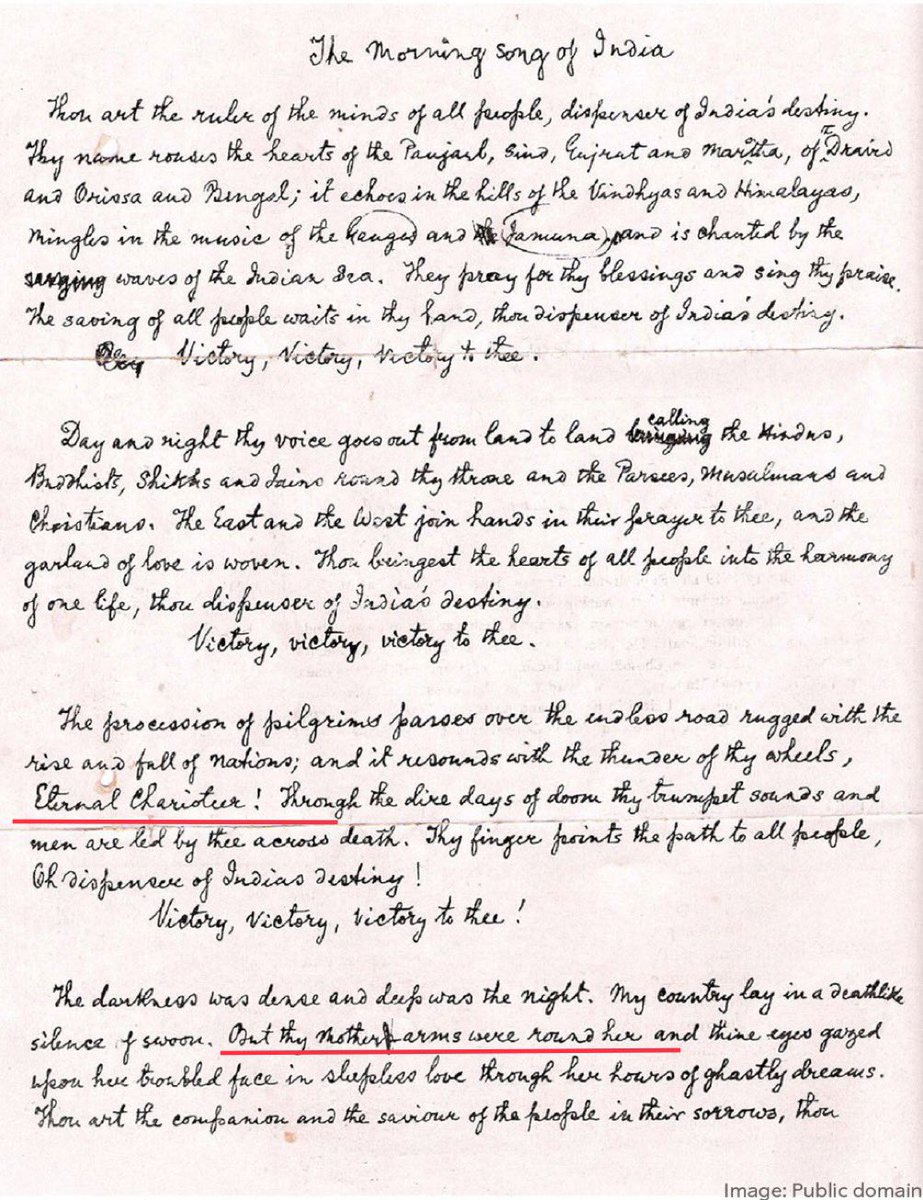 The Morning song of India
Thou art the ruler of the minds of all people, dispenser of India's destiny.
Thy name rouses the hearts of the Panjaub, Sind, Gujrat and Maratha, of Dravid
and Orissa and Bengal; it echoes in the hills of the Vindhyas and Himalayas,
mingles in the music of the Ganges and Jamuna, and is chanted by the
surging waves of the Indian Sea. They pray for thy blessings and sing thy praise.
The saving of all people waits in thy hand, thou dispenser of India's destiny.
Victory, Victory, Victory to thee.
Day and night thy voice goes out from land to land calling the Hindus,
Buddhists, Shikhs and Jains round thy throne and the Parsees, Musulmans and
Christians. The East and the West join hands in their prayer to thee, and the
garland of love is woven. Thou bringest the hearts of all people into the harmony
of one life, thou dispenser of India's destiny.
Victory, victory, victory to thee.
The procession of pilgrims passes over the endless road rugged with the
rise and fall of nations; and it resounds with the thunder of thy wheels,
Eternal Charioteer! Through the dire days of doom thy trumpet sounds and
men are led by thee across death. Thy finger points the path to all people,
Oh dispenser of Indias destiny!
Victory, Victory, Victory to thee!
The darkness was dense and deep was the night. My country lay in a deathlike
silence of swoon. But thy Mother arms were round her and thine eyes gazed
upon her troubled face in sleepless love through her hours of ghastly dreams.
Thou art the companion and the saviour of the people in their sorrows, thou
Image: Public domain